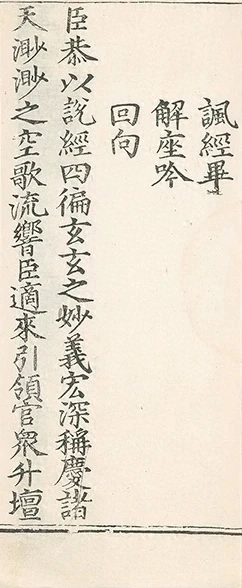 諷經畢
解座吟
回向
臣恭以說經四徧玄玄之妙義宏深稱慶諸
天渺渺之空歌流響臣適來引領官眾升壇